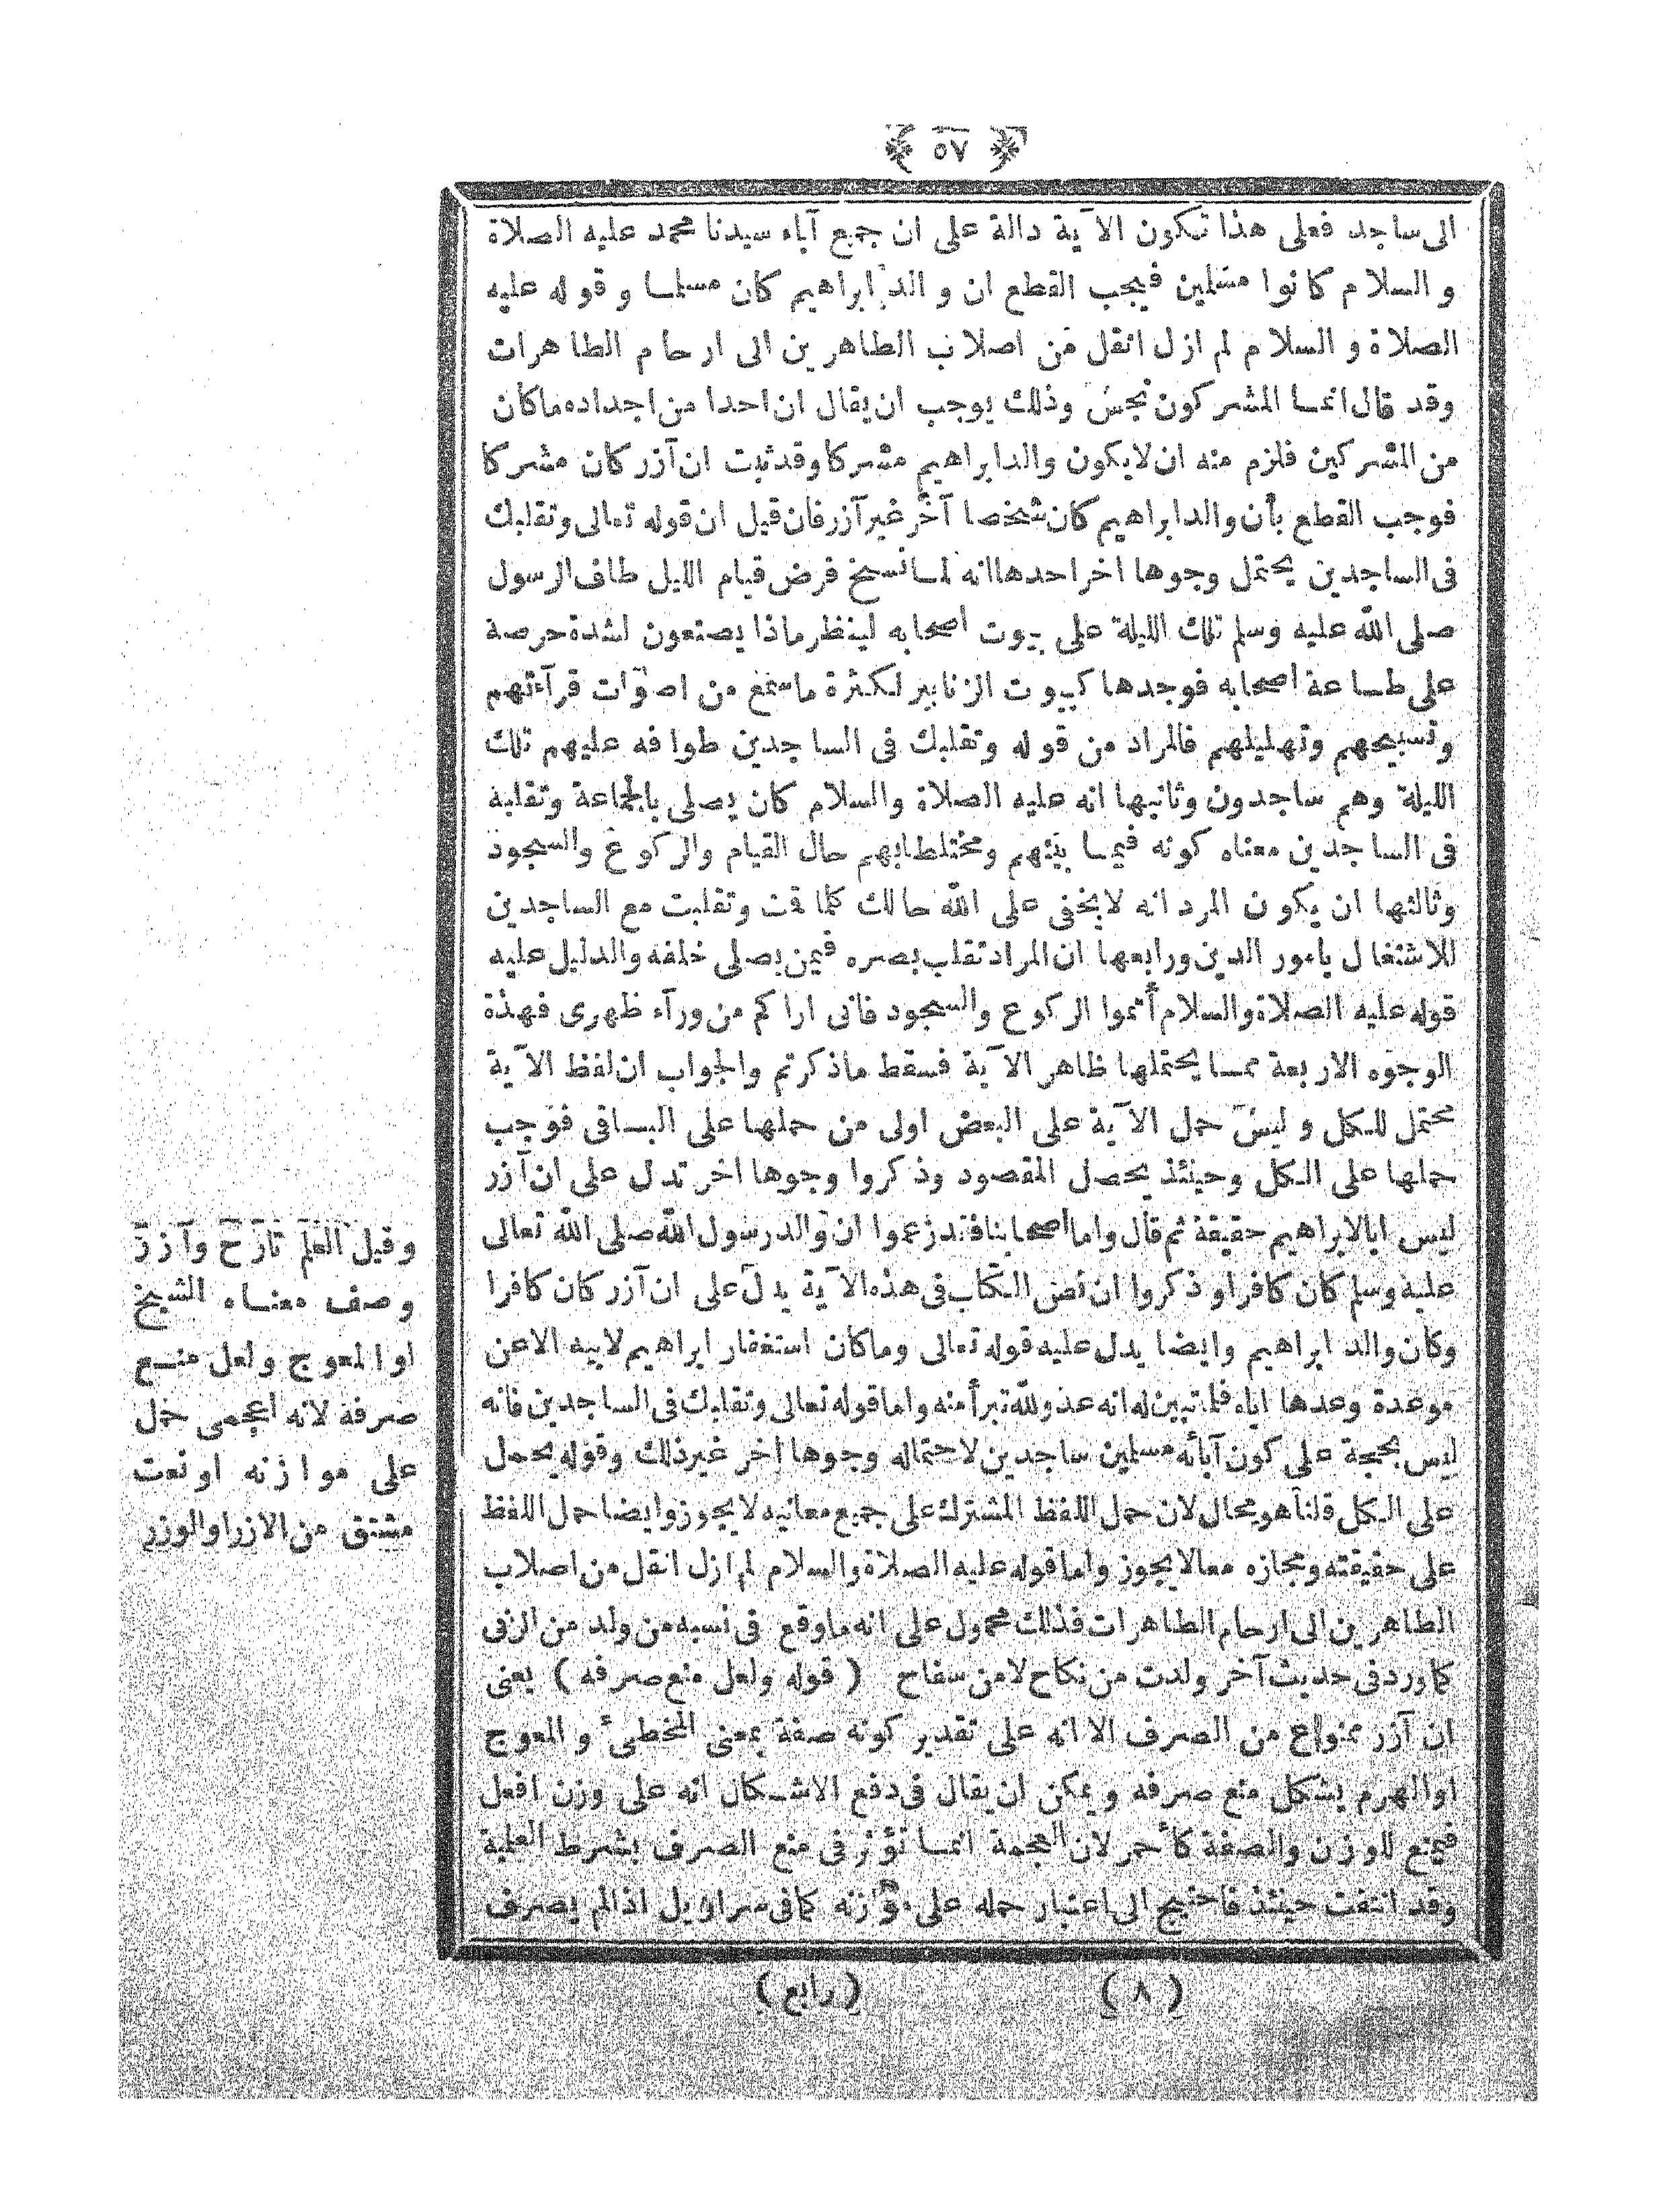 ٥٧
الى ساجد فعلى هذا تكون الآية دالة على ان جميع آباء سيدنا محمد عليه الصلاة
و السلام كانوا مسلمين فيجب القطع ان والد ابراهيم كان مسلما و قوله عليه
الصلاة و السلام لم ازل انقل من اصلاب الطاهرين الى ارحام الطاهرات
وقد قال انما المشركون نجس وذلك يوجب ان يقال ان احدا من اجداده ماكان
من المشركين فلزم منه ان لايكون والد ابراهيم مشركا وقد ثبت ان آزر كان مشركا
فوجب القطع بأن والد ابراهيم كان شخصا آخر غير آزر فان قيل ان قوله تعالى وتقلبك
فى الساجدين يحتمل وجوها اخر احدها انه لما نسخ فرض قيام الليل طاف الرسول
صلى الله عليه وسلم تلك الليلة على بيوت اصحابه لينظر ماذا يصنعون لشدة حرصة
على طاعة اصحابه فوجدها كبيوت الزنابير لكثرة ماسمع من اصوات قرآءتهم
وتسبيحهم وتهليلهم فالمراد من قوله وتقلبك فى الساجدين طوافه عليهم تلك
الليلة وهم ساجدون وثانيها انه عليه الصلاة والسلام كان يصلى بالجماعة وتقلبه
فى الساجدين معناه كونه فيما بينهم ومختلطا بهم حال القيام والركوع والسجود
وثالثها ان يكون المرد انه لايخفى على الله حالك كلما قمت وتقلبت مع الساجدين
للاشتغال بامور الدين ورابعها ان المراد تقلب بصره فيمن يصلى خلفه والدليل عليه
قوله عليه الصلاة والسلام أتموا الركوع والسجود فانى اراكم من ورآء ظهرى فهذة
الوجوه الاربعة مما يحتملها ظاهر الآية فسقط ماذكرتم والجواب ان لفظ الآية
محتمل للكل و ليس حمل الآية على البعض اولى من حملها على الباقى فوجب
حملها على الكل وحينئذ يحصل المقصود وذكروا وجوها اخر تدل على ان آزر
ليس ابا لابراهيم حقيقة ثم قال واما اصحابنا فقد زعموا ان والد رسول الله صلى الله تعالى
عليه وسلم كان كافرا وذكروا ان نص الكتاب فى هذه الآية يدل على ان آزر كان كافرا
وكان والد ابراهيم وايضا يدل عليه قوله تعالى وماكان استغفار ابراهيم لابيه الا عن
موعدة وعدها اياه فلما تبين له انه عدو لله تبرأ منه واما قوله تعالى وتقلبك فى الساجدين فانه
ليس بحجة على كون آبائه مسلمين ساجدين لاحتماله وجوها اخر غير ذلك وقوله يحمل
على الكل قلنا هو محال لان حمل اللفظ المشترك على جميع معانيه لايجوز وايضا حمل اللفظ
على حقيقته ومجازه معا لايجوز واما قوله عليه الصلاة والسلام لم ازل انقل من اصلاب
الطاهرين الى ارحام الطاهرات فذلك محمول على انه ماوقع فى نسبه من ولد من الزنى
كما ورد فى حديث آخر ولدت من نكاح لا من سفاح ( قوله ولعل منع صرفه ) يعنى
ان آزر ممنواع من الصرف الا انه على تقدير كونه صفة بمعنى المخطىء و المعوج
او الهرم يشكل منع صرفه ويمكن ان يقال فى دفع الاشكال انه على وزن افعل
فيمنع للوزن والصفة كأحمر لان العجمة انما تؤثر فى منع الصرف بشرط العلمية
وقد انتفت حينئذ فاحتيج الى اعتبار حمله على موازنه كما فى سراويل اذا لم يصرف
وقيل العلم تارح وآزر
وصف معناه الشيخ
او المعوج ولعل منع
صرفه لانه اعجمى حمل
على موازنه او نعت
مشتق من الازر او الوزر
( ٨ ) ( رابع )